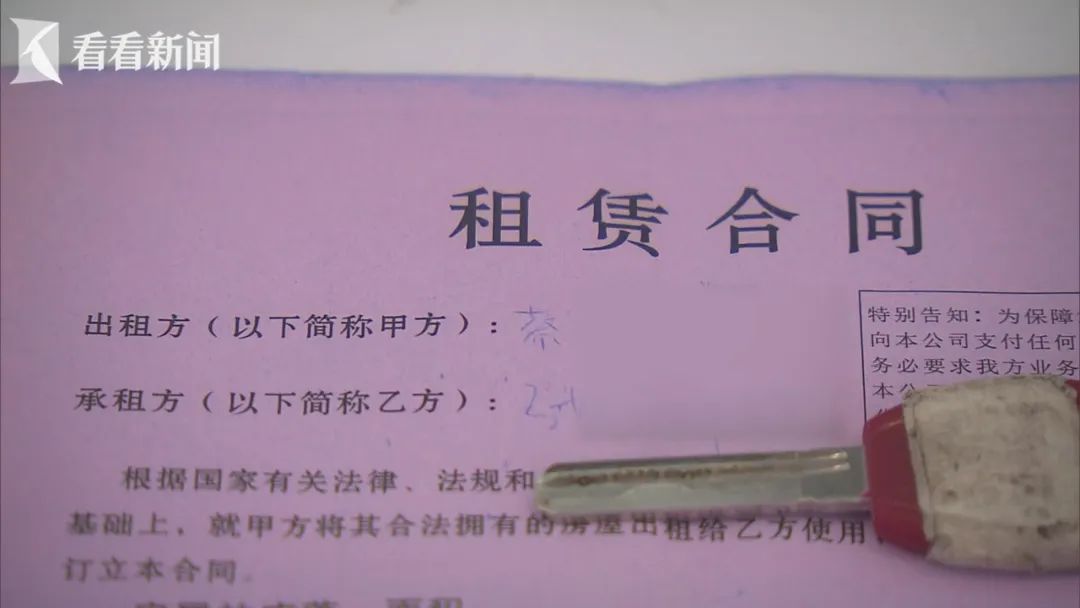 看看新闻
租赁合同
出租方（以下简称甲方）：蔡
特别告知：为保障
向本公司支付任何
务必要求我方业务
本公
承租方（以下简称乙方）：
根据国家有关法律、法规和
基础上，就甲方将其合法拥有的房屋出租给乙方使用，
订立本合同。